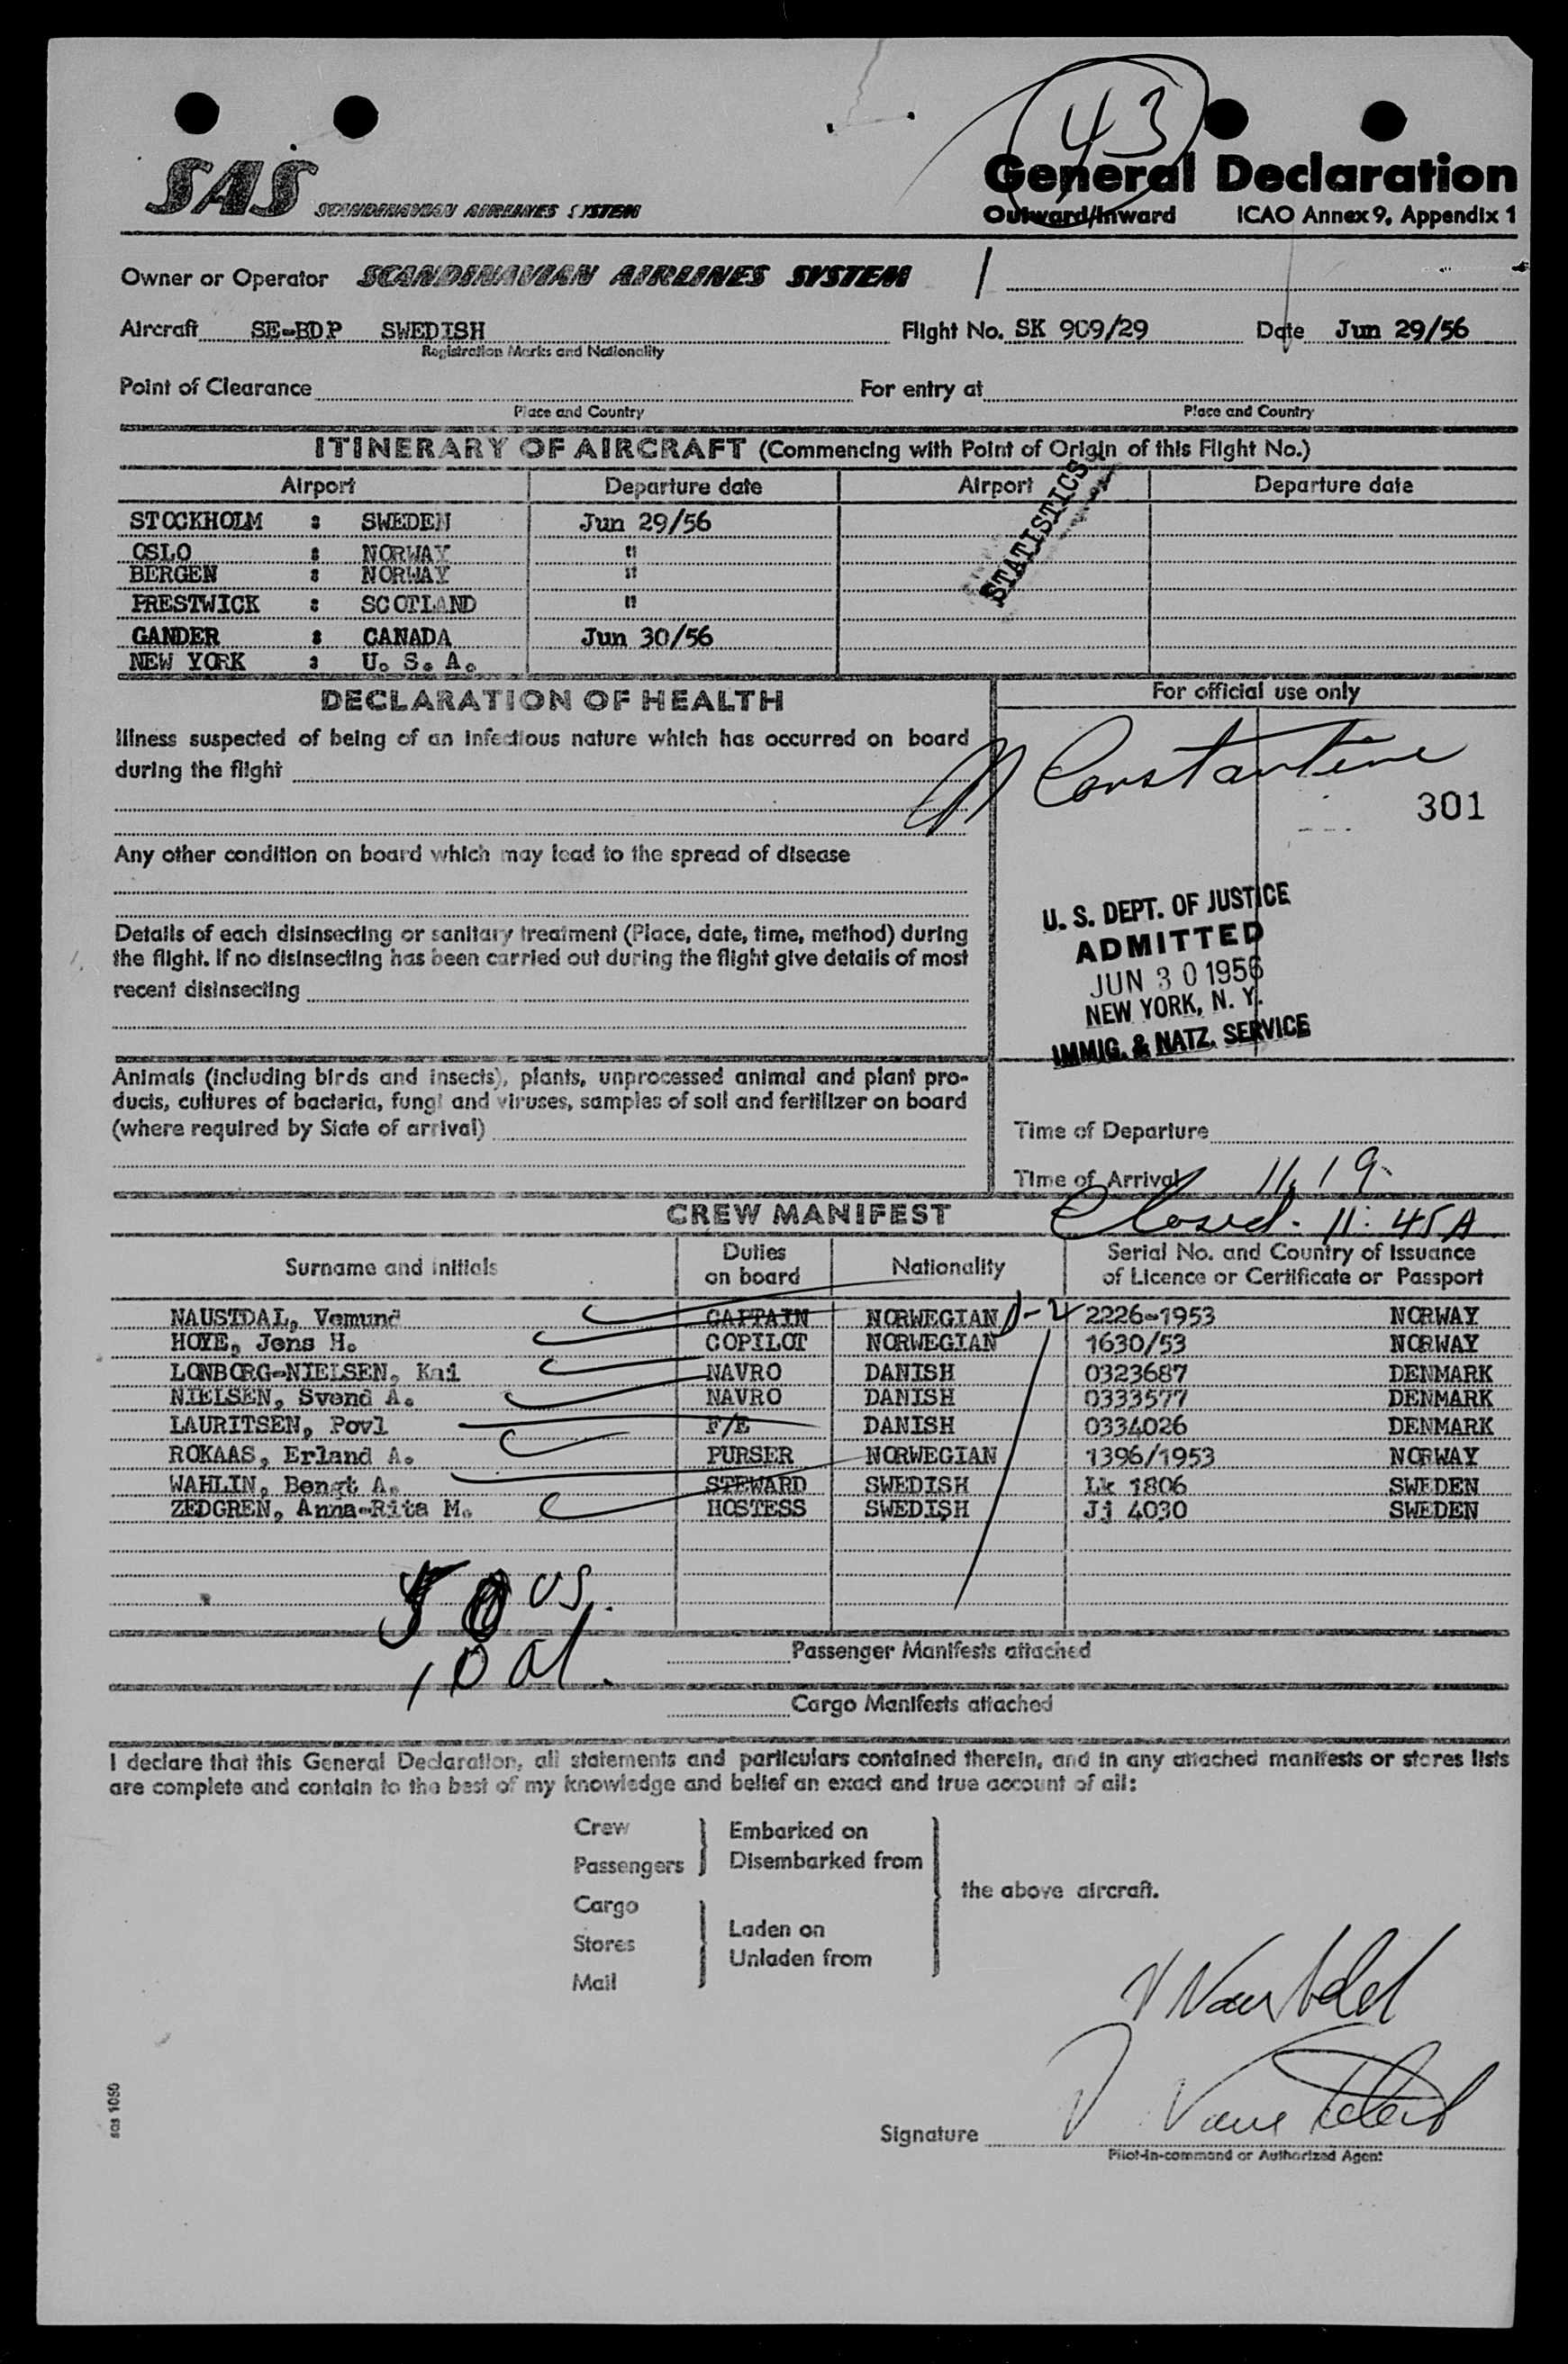 43
SAS SCANDINAVIAN AIRLINES SYSTEM
General Declaration
Outward/Inward ICAO Annex 9, Appendix 1
Owner or Operator SCANDINAVIAN AIRLINES SYSTEM
Aircraft SE-BDP SWEDISH Flight No. SK 909/29 Date Jun 29/56
Registration Marks and Nationality
Point of Clearance For entry at
Place and Country Place and Country
ITINERARY OF AIRCRAFT (Commencing with Point of Origin of this Flight No.)
Airport Departure date Airport Departure date
STOCKHOLM : SWEDEN Jun 29/56
OSLO : NORWAY "
BERGEN : NORWAY "
PRESTWICK : SCOTLAND "
GANDER : CANADA Jun 30/56
NEW YORK : U. S. A.
STATISTICS
DECLARATION OF HEALTH
Illness suspected of being of an infectious nature which has occurred on board
during the flight
Any other condition on board which may lead to the spread of disease
Details of each disinsecting or sanitary treatment (Place, date, time, method) during
the flight. If no disinsecting has been carried out during the flight give details of most
recent disinsecting
Animals (including birds and insects), plants, unprocessed animal and plant pro-
ducts, cultures of bacteria, fungi and viruses, samples of soil and fertilizer on board
(where required by State of arrival)
For official use only
Constantine
301
U. S. DEPT. OF JUSTICE
ADMITTED
JUN 30 1956
NEW YORK, N. Y.
IMMIG. & NATZ. SERVICE
Time of Departure
Time of Arrival 11.19
Closed - 11:45A
CREW MANIFEST
Surname and initials Duties on board Nationality Serial No. and Country of Issuance of Licence or Certificate or Passport
NAUSTDAL, Vemund CAPTAIN NORWEGIAN D-2 2226-1953 NORWAY
HOYE, Jens H. COPILOT NORWEGIAN 1630/53 NORWAY
LONBORG-NIELSEN, Kai NAVRO DANISH 0323687 DENMARK
NIELSEN, Svend A. NAVRO DANISH 0333577 DENMARK
LAURITSEN, Povl F/E DANISH 0334026 DENMARK
ROKAAS, Erland A. PURSER NORWEGIAN 1396/1953 NORWAY
WAHLIN, Bengt A. STEWARD SWEDISH Lk 1806 SWEDEN
ZEDGREN, Anna-Rita M. HOSTESS SWEDISH Jj 4030 SWEDEN
US.
10 al.
Passenger Manifests attached
Cargo Manifests attached
I declare that this General Declaration, all statements and particulars contained therein, and in any attached manifests or stores lists
are complete and contain to the best of my knowledge and belief an exact and true account of all:
Crew
Passengers
Embarked on
Disembarked from
Cargo
Stores
Mail
Laden on
Unladen from
the above aircraft.
Signature
Pilot-in-command or Authorized Agent
sas 1050